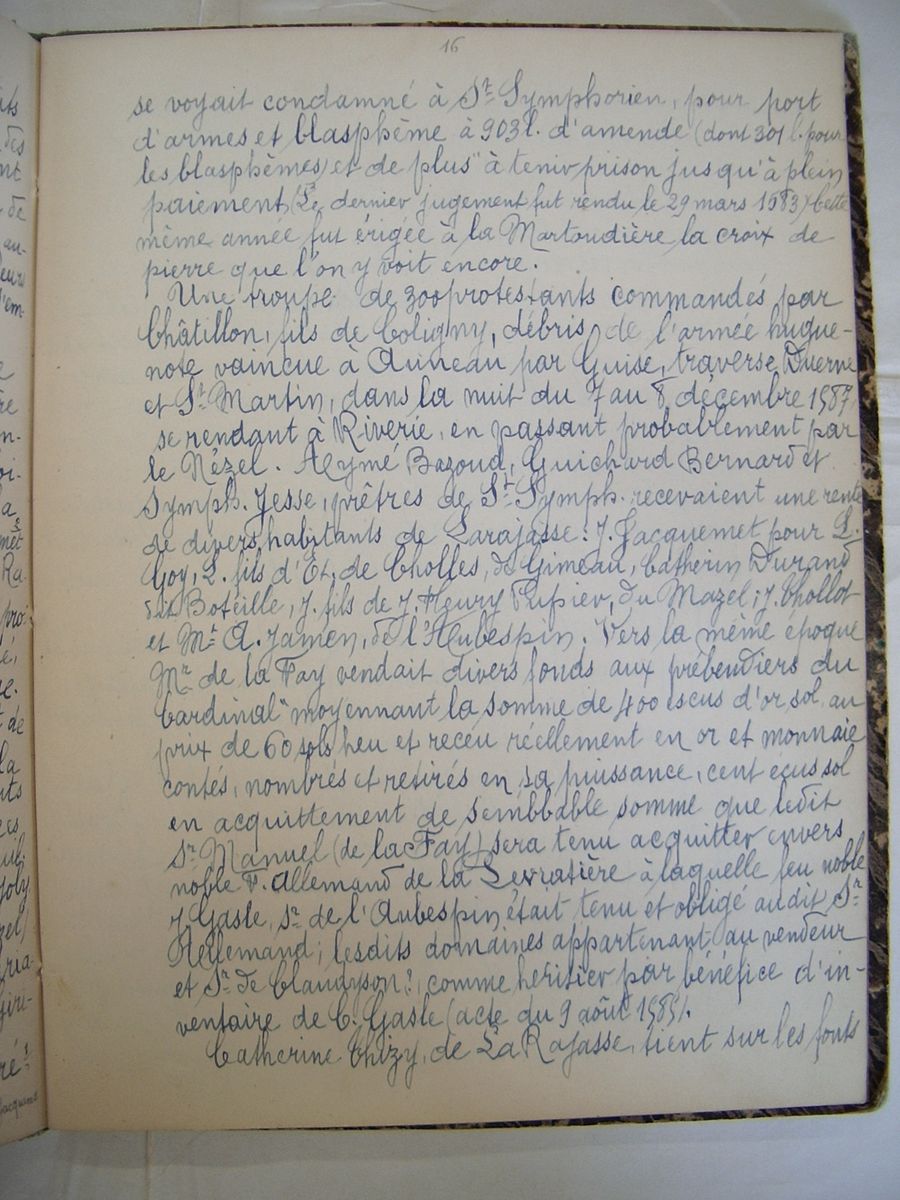 16
se voyait condamné à St Symphorien, pour port
d'armes et blasphème à 903 l. d'amende (dont 301 l. pour
les blasphèmes) et de plus "à tenir prison jusqu'à plein
paiement (Le dernier jugement fut rendu le 29 mars 1583) Cette
même année fut érigée à la Martoudière la croix de
pierre que l'on y voit encore.
Une troupe de 300 protestants commandés par
Châtillon, fils de Coligny, débris de l'armée hugue-
note vaincue à Auneau par Guise, traverse Duerne
et St Martin, dans la nuit du 7 au 8 décembre 1587,
se rendant à Riverie, en passant probablement par
le Nézel. Aymé Bazoud, Guichard Bernard et
Symph. Jesse, prêtres de St Symph. recevaient une rente
de divers habitants de Larajasse: J. Jacquemet pour L.
Goy, L. fils d'Et. de Cholles, de Gimeau, Catherin Durand
dit Boteille, J. fils de J. Fleury Pupier, du Mazel; J. Chollot
et Mr A. Jamen, de l'Aubespin. Vers la même époque
Mr de la Fay vendait divers fonds aux prébendiers du
Cardinal "moyennant la somme de 400 escus d'or sol, au
prix de 60 sols heu et receu réellement en or et monnaie
contés, nombrés et retirés en sa puissance, cent écus sol
en acquittement de sembbable somme que ledit
Sr Manuel (de la Fay) sera tenu acquitter envers
noble F. Allemand de la Levratière à laquelle feu noble
J. Gasle, Sr de l'Aubespin était tenu et obligé audit Sr
Allemand; lesdits domaines appartenant au vendeur
et Sr de ?, comme heritier par bénéfice d'in-
ventaire de C. Gasle (acte du 9 août 1585).
Catherine Chizy, de La Rajasse, tient sur les fonts